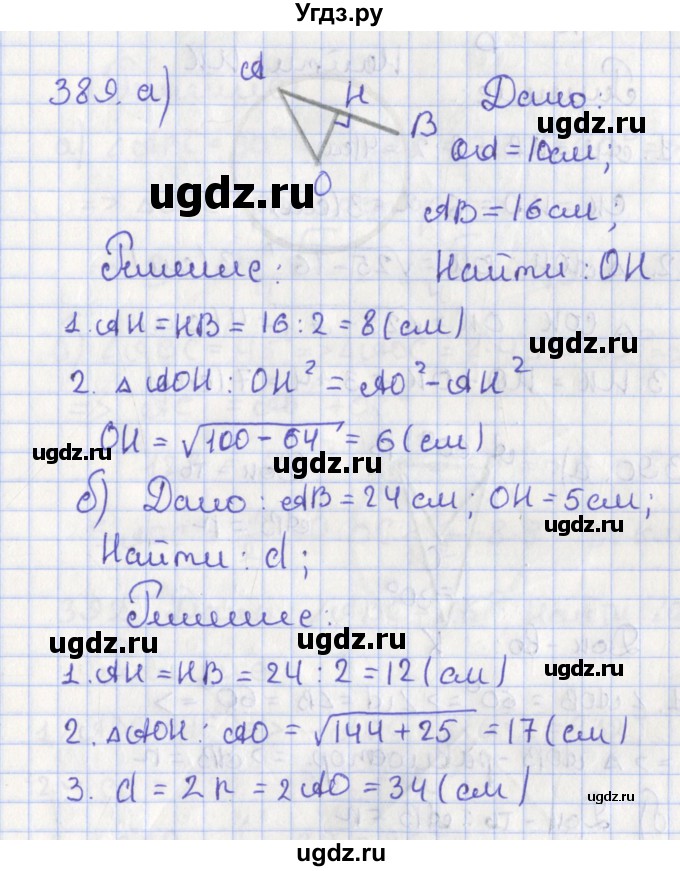 Угдз.ру
389. а)
A
H
B
O
Дано:
OA = 10 см;
AB = 16 см;
ugdz.ru
ugdz.ru
ugdz.ru
Решение:
Найти: OH
1. AH = HB = 16 : 2 = 8 (см)
ugdz.ru
ugdz.ru
2. △ AOH : OH² = AO² - AH²
OH = √100 - 64 = 6 (см)
ugdz.ru
ugdz.ru
б) Дано: AB = 24 см; OH = 5 см;
ugdz.ru
Найти: d;
Решение:
ugdz.ru
ugdz.ru
ugdz.ru
1. AH = HB = 24 : 2 = 12 (см)
2. △ AOH : AO = √144 + 25 = 17 (см)
3. d = 2r = 2AO = 34 (см)
ugdz.ru
ugdz.ru